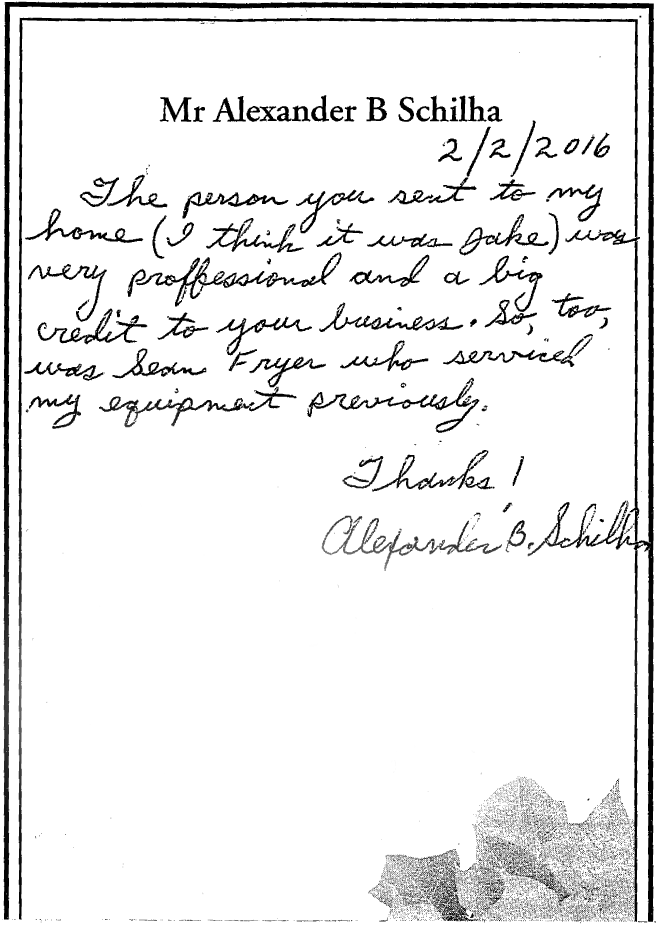 Mr Alexander B Schilha
2/2/2016
The person you sent to my
home (I think it was Jake) was
very proffessional and a big
credit to your business. So, too,
was Sean Fryer who serviced
my equipment previously.
Thanks!
Alexander B. Schilha